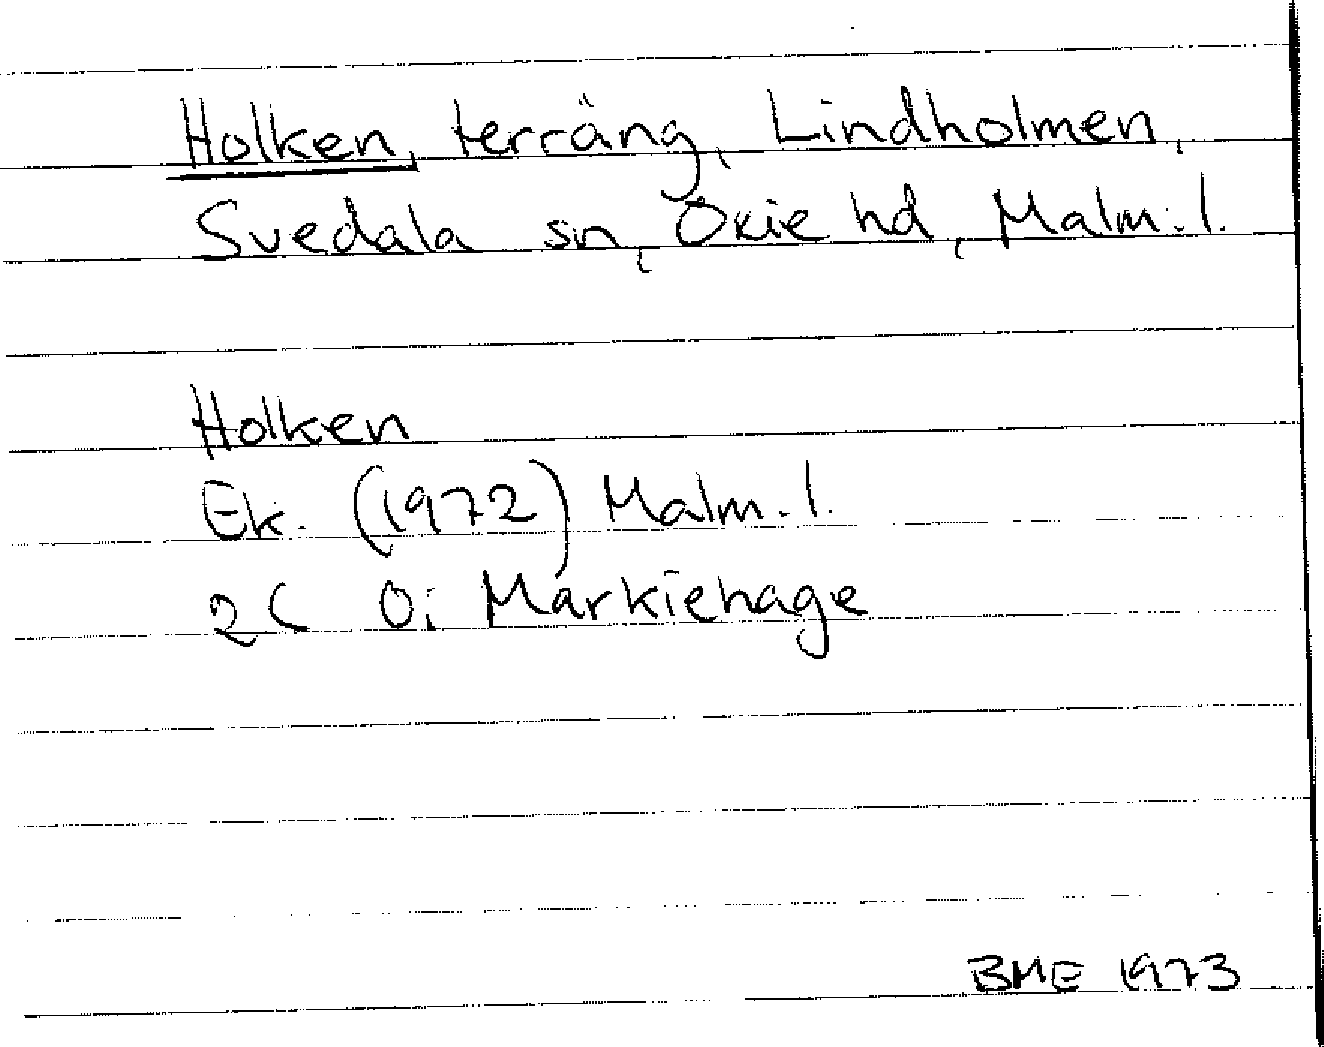 Holken, terräng, Lindholmen,
Svedala sn, Oxie hd, Malm.l.
Holken
Ek. (1972) Malm.l.
2C 0i Markiehage
BME 1973